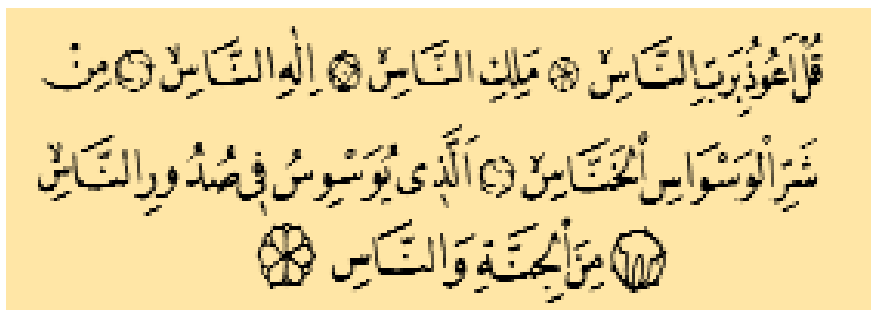 قُلْ اَعُوْذُ بِرَبِّ النَّاسِۙ مَلِكِ النَّاسِۙ اِلٰهِ النَّاسِۙ مِنْ
شَرِّ الْوَسْوَاسِ الْخَنَّاسِۙ اَلَّذٖى يُوَسْوِسُ فٖى صُدُورِ النَّاسِۙ
مِنَ الْجِنَّةِ وَالنَّاسِ